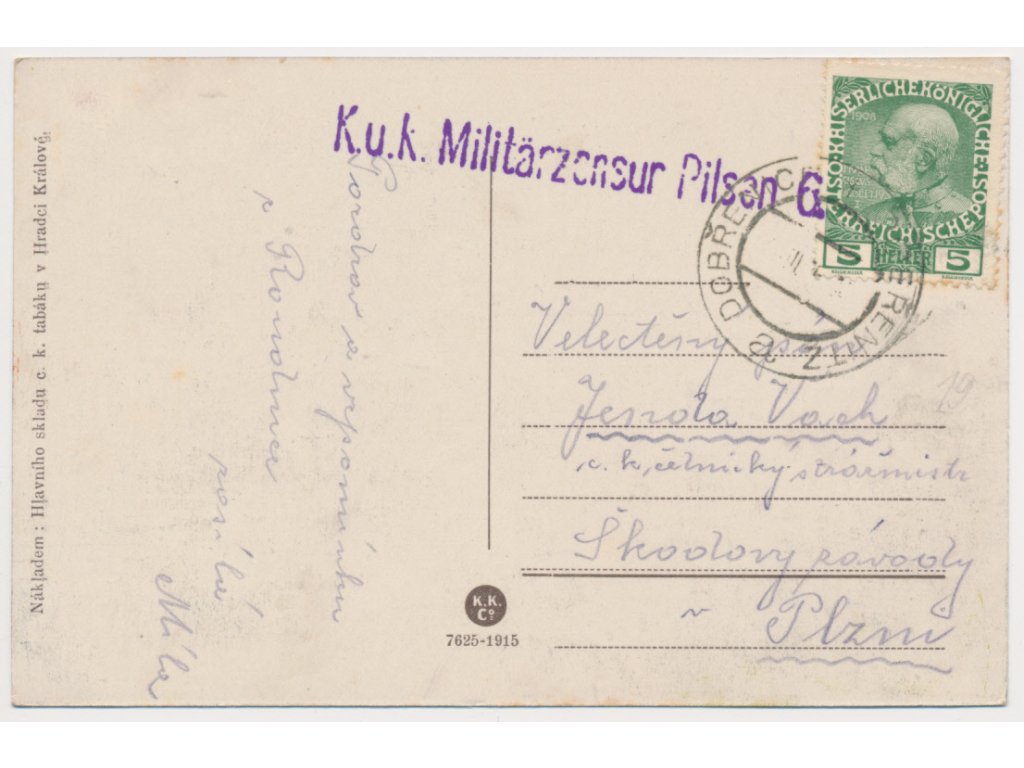 Nákladem : Hlavního skladu c. k. tabáku v Hradci Králové.
Pozdrav a vzpomínku
z Roudnice
posílá
Míla
K.u.k. Militärzensur Pilsen 6
1908
KAISERLICHE KÖNIGLICHE
ÖSTERREICHISCHE POST
5 HELLER 5
DOBŘENICE
DOBŘENITZ
Velectěný pan
Jenda Vach
c. k. četnický strážmistr
Škodovy závody
v
Plzni
19
K.K.
Co.
7625-1915